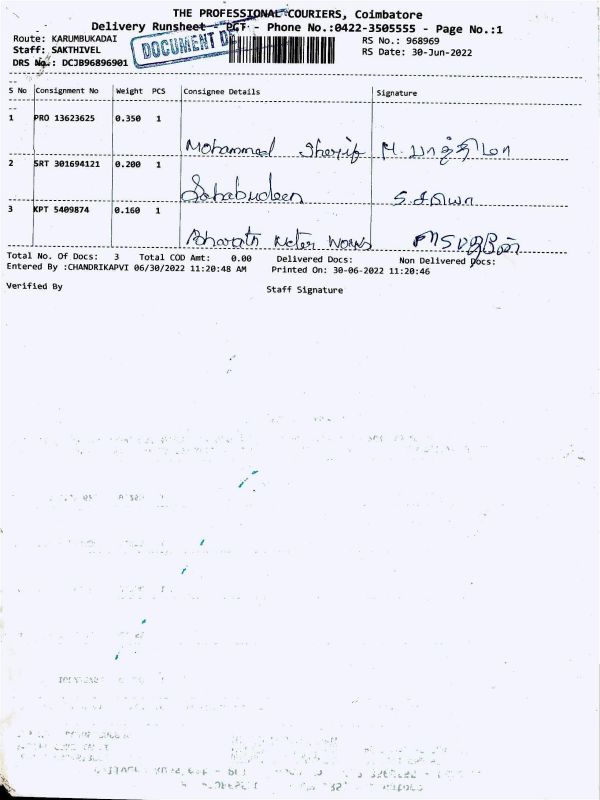 THE PROFESSIONAL COURIERS, Coimbatore
Delivery Runsheet - PCT - Phone No.:0422-3505555 - Page No.:1
Route: KARUMBUKADAI
DOCUMENT
RS No.: 968969
Staff: SAKTHIVEL
RS Date: 30-Jun-2022
DRS No.: DCJB96896901
S No Consignment No Weight PCS Consignee Details Signature
1 PRO 13623625 0.350 1
Mohammed Sherif
2 SRT 301694121 0.200 1
Sahabudeen
3 KPT 5409874 0.160 1
Bharath Meter Works
Total No. Of Docs: 3 Total COD Amt: 0.00 Delivered Docs: Non Delivered Docs:
Entered By :CHANDRIKAPVI 06/30/2022 11:20:48 AM Printed On: 30-06-2022 11:20:46
Verified By Staff Signature